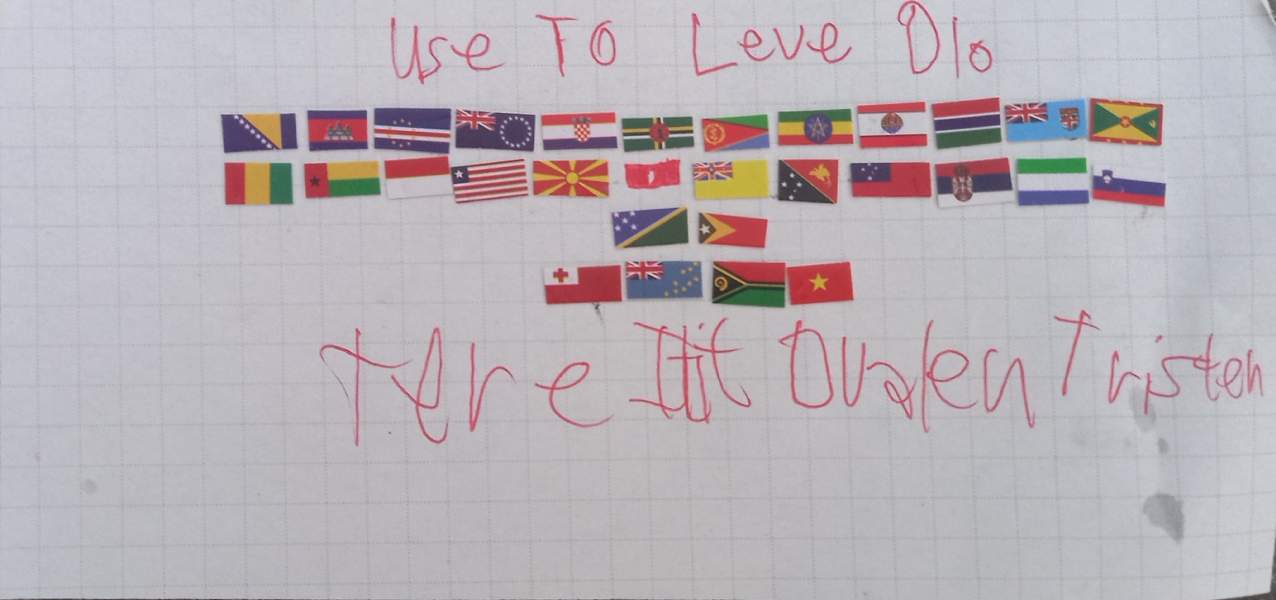 Use TO Leve Dlo
Tere Itit Oualen Tristen